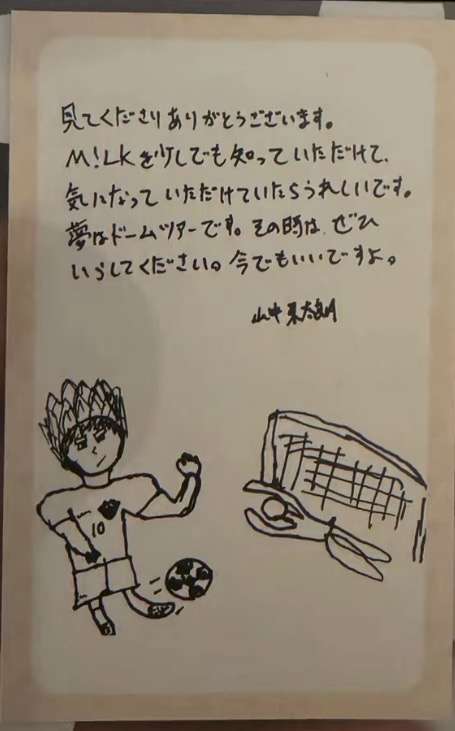 見てくださりありがとうございます。
M!LKを少しでも知っていただけて、
気になっていただけていたらうれしいです。
夢はドームツアーです。その時は、ぜひ
いらしてください。今でもいいですよ。
山中柔太朗
10